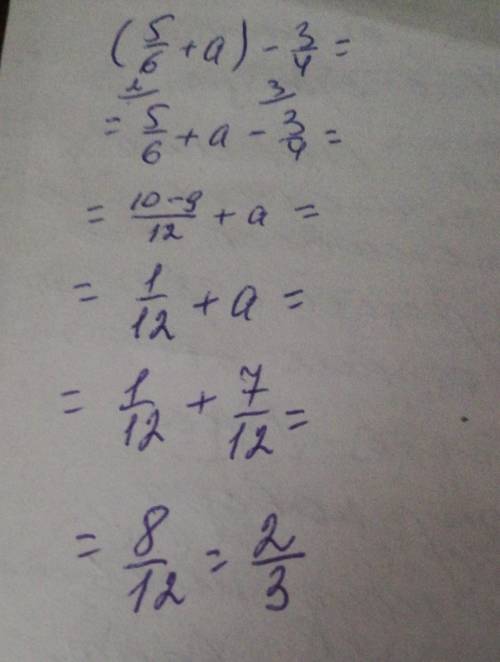 (5/6 + a) - 3/4 =
2 3
= 5/6 + a - 3/4 =
= 10-9/12 + a =
= 1/12 + a =
= 1/12 + 7/12 =
= 8/12 = 2/3